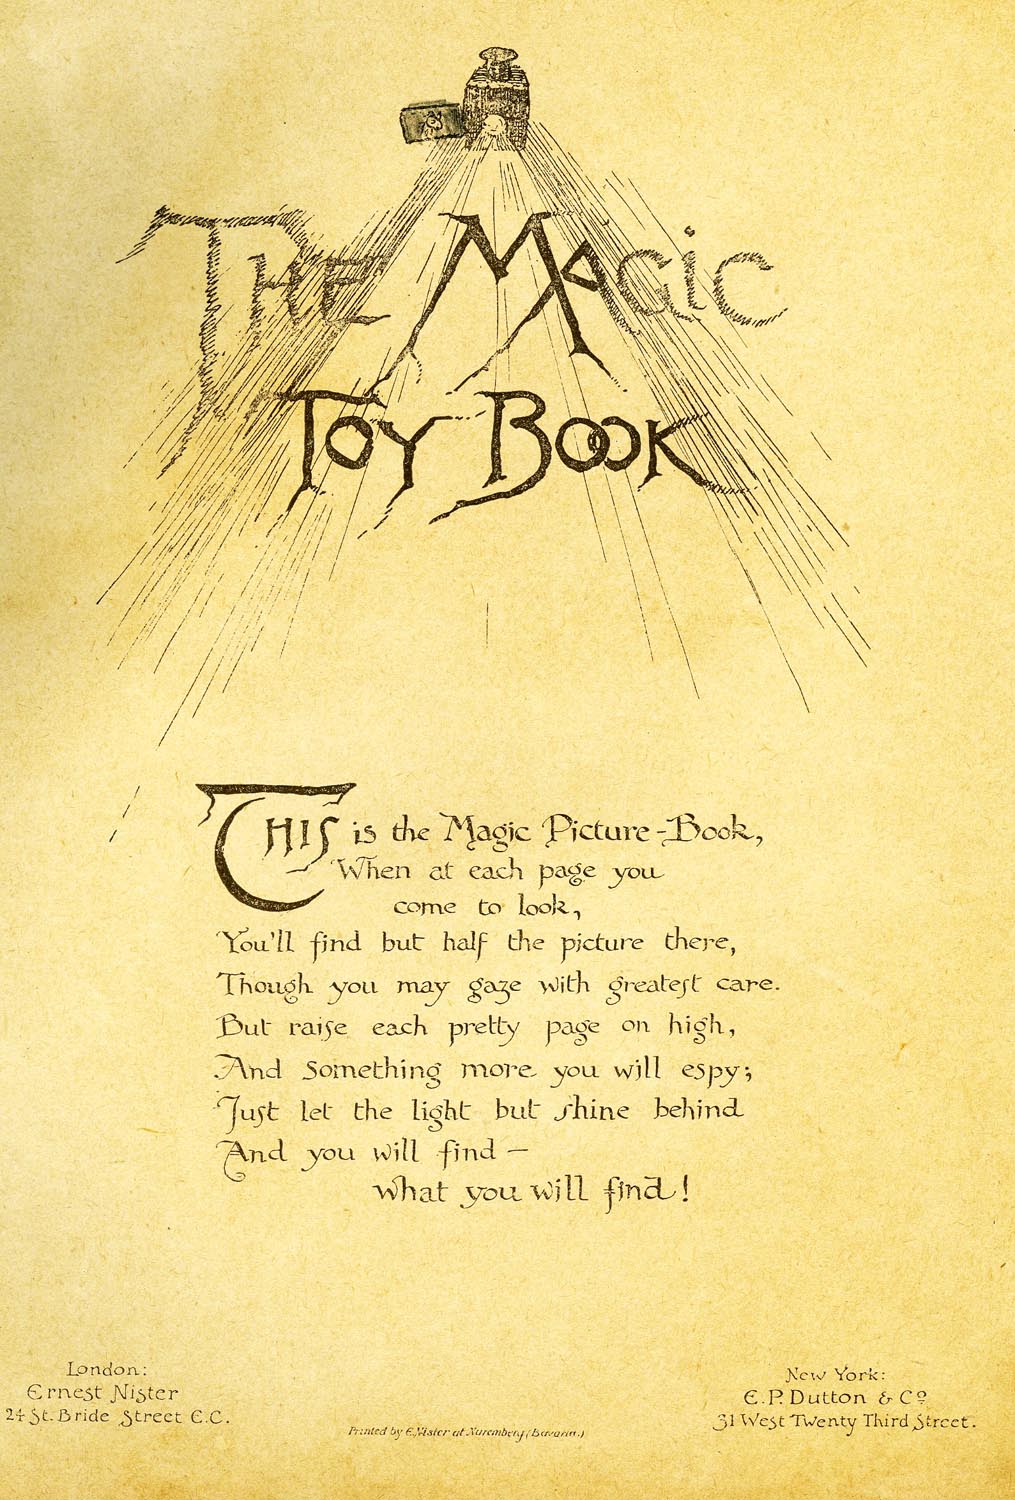 The Magic
Toy Book
This is the Magic Picture-Book,
When at each page you
come to look,
You'll find but half the picture there,
Though you may gaze with greatest care.
But raise each pretty page on high,
And something more you will espy;
Just let the light but shine behind
And you will find —
what you will find!
London:
Ernest Nister
24 St. Bride Street E.C.
Printed by E. Nister at Nuremberg (Bavaria.)
New York:
E. P. Dutton & Co
31 West Twenty Third Street.